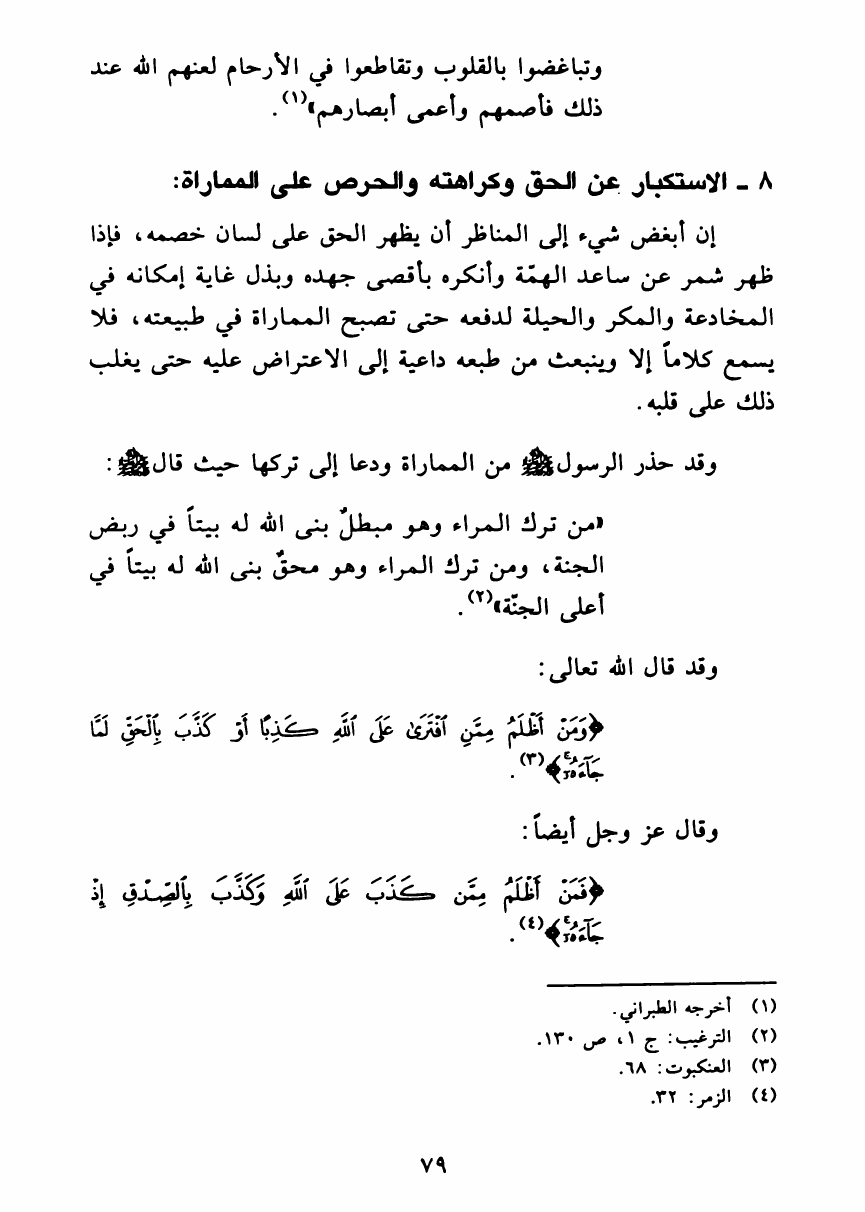 وتباغضوا بالقلوب وتقاطعوا في الأرحام لعنهم الله عند
ذلك فأصمهم وأعمى أبصارهم»(١).
٨ - الاستكبار عن الحق وكراهته والحرص على المماراة:
إن أبغض شيء إلى المناظر أن يظهر الحق على لسان خصمه، فإذا
ظهر شمر عن ساعد الهمّة وأنكره بأقصى جهده وبذل غاية إمكانه في
المخادعة والمكر والحيلة لدفعه حتى تصبح المماراة في طبيعته، فلا
يسمع كلاماً إلا وينبعث من طبعه داعية إلى الاعتراض عليه حتى يغلب
ذلك على قلبه.
وقد حذر الرسول ﷺ من المماراة ودعا إلى تركها حيث قال ﷺ:
«من ترك المراء وهو مبطلٌ بنى الله له بيتاً في ربض
الجنة، ومن ترك المراء وهو محقٌ بنى الله له بيتاً في
أعلى الجنّة»(٢).
وقد قال الله تعالى:
﴿وَمَنْ أَظْلَمُ مِمَّنِ ٱفْتَرَىٰ عَلَى ٱللَّهِ كَذِبًا أَوْ كَذَّبَ بِٱلْحَقِّ لَمَّا
جَآءَهُۥٓ﴾(٣).
وقال عز وجل أيضاً:
﴿فَمَنْ أَظْلَمُ مِمَّن كَذَبَ عَلَى ٱللَّهِ وَكَذَّبَ بِٱلصِّدْقِ إِذْ
جَآءَهُۥٓ﴾(٤).
(١) أخرجه الطبراني.
(٢) الترغيب: ج ١، ص ١٣٠.
(٣) العنكبوت: ٦٨.
(٤) الزمر: ٣٢.
٧٩